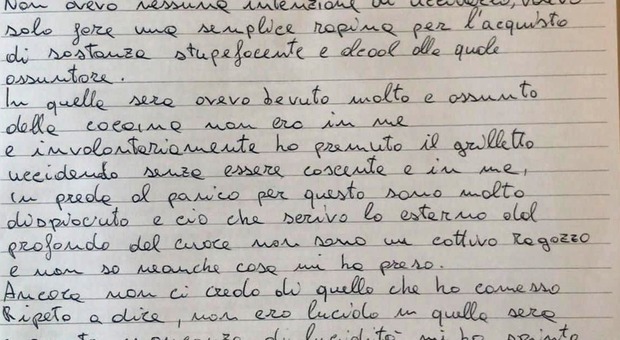 Non avevo nessuna intenzione di ucciderlo, volevo
solo fare una semplice rapina per l'acquisto
di sostanza stupefacente e alcool alla quale
assuntore.
In quella sera avevo bevuto molto e assunto
della cocaina non ero in me
e involontariamente ho premuto il grilletto
uccidendo senza essere coscente e in me,
in preda al panico per questo sono molto
dispiaciuto e ciò che scrivo lo esterno dal
profondo del cuore non sono un cattivo ragazzo
e non so neanche cosa mi ha preso.
Ancora non ci credo di quello che ho comesso
Ripeto a dire, non ero lucido in quella sera
di lucidità mi ha spinto